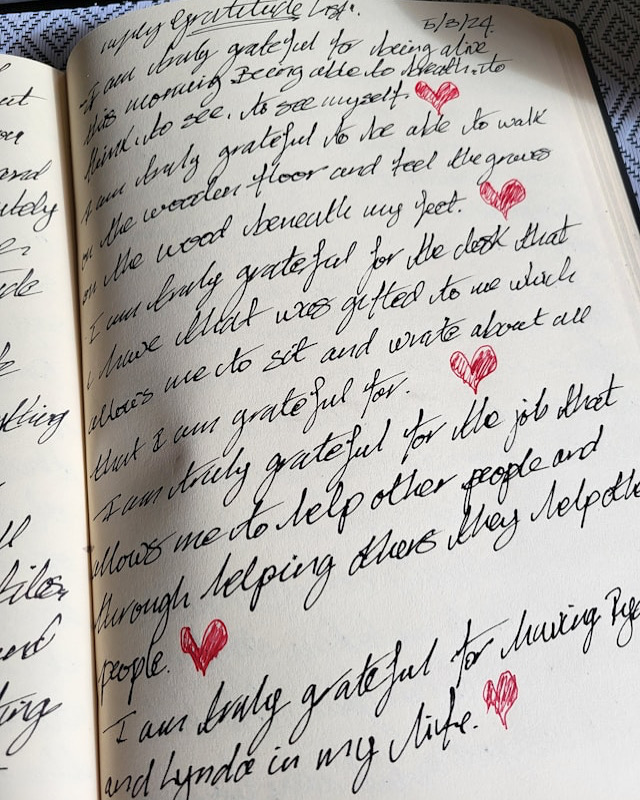 Gratitude List.
5/3/24
- I am truly grateful for being alive
this morning Being able to breath, to
think, to see, to see myself.
I am truly grateful to be able to walk
on the wooden floor and feel the groves
on the wood beneath my feet.
I am truly grateful for the desk that
i have that was gifted to me which
allows me to sit and wrate about all
that I am grateful for.
I am truly grateful for the job that
allows me to help other people and
through helping others they help othe
people.
I am truly grateful for having
and Lynda in my life.
and
utely
ything
ting